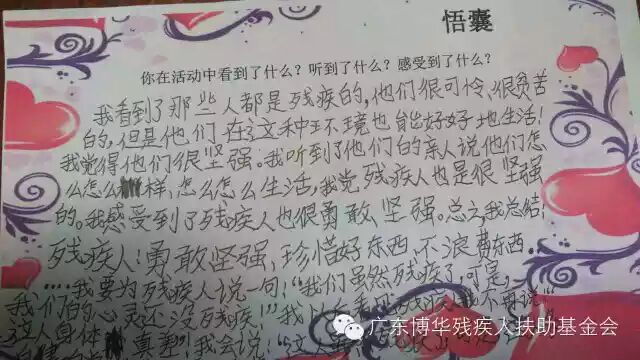 悟囊
你在活动中看到了什么？听到了什么？感受到了什么？
我看到了那些人都是残疾的,他们很可怜、很贫苦
的,但是他们在这种环境也能好好地生活!
我觉得他们很坚强。我听到了他们的亲人说他们怎
么怎么样,怎么怎么生活,我觉残疾人也是很坚强
的。我感受到了残疾人也很勇敢、坚强。总之,我总结:
残疾人!勇敢坚强,珍惜好东西,不浪费东西
....我要为残疾人说一句:“我们虽然残疾了,可是,
我们的心灵不没残疾”我
这人身体 真 我会说:“
广东博华残疾人扶助基金会